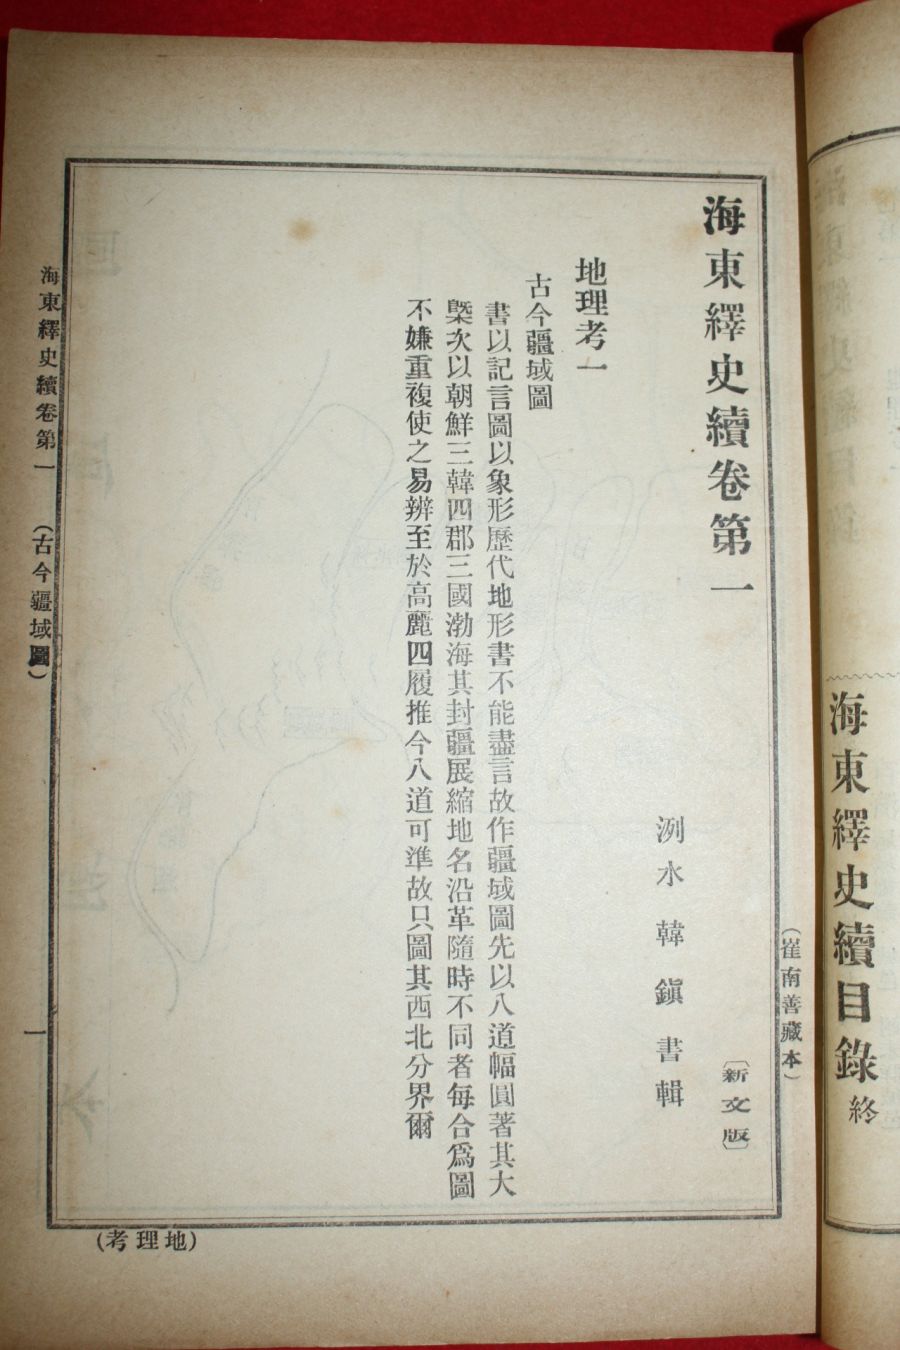 海東繹史續卷第一
〔新文版〕
洌水韓鎭書輯
地理考一
古今疆域圖
書以記言圖以象形歷代地形書不能盡言故作疆域圖先以八道幅圓著其大
槩次以朝鮮三韓四郡三國渤海其封疆展縮地名沿革隨時不同者每合爲圖
不嫌重複使之易辨至於高麗四履推今八道可準故只圖其西北分界爾
海東繹史續卷第一
(古今疆域圖)
一
(地理考)
(崔南善藏本)
海東繹史續目錄終